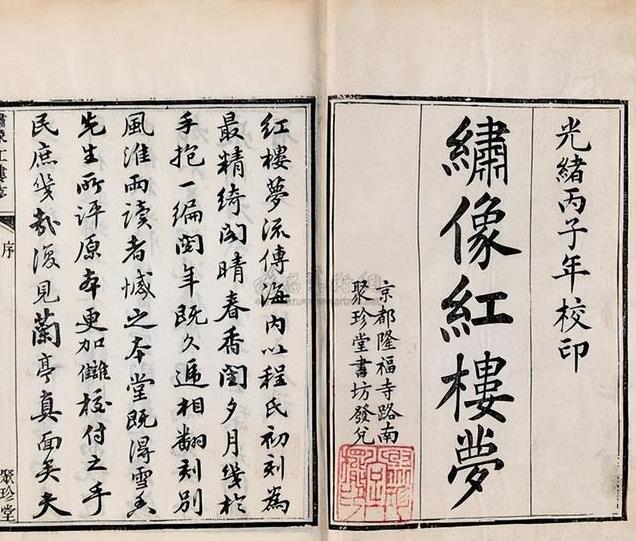 光緒丙子年校印
繡像紅樓夢
京都隆福寺路南
聚珍堂書坊發兌
紅樓夢流傳海内以程氏初刻為
最精綺閣晴春香閨夕月幾於
手抱一編閲年既久遞相翻刻別
風淮雨读者憾之本堂既得雪香
先生所評原本更加讎校付之手
民庶幾哉復見蘭亭真面矣夫
繡像紅樓夢
序
聚珍堂